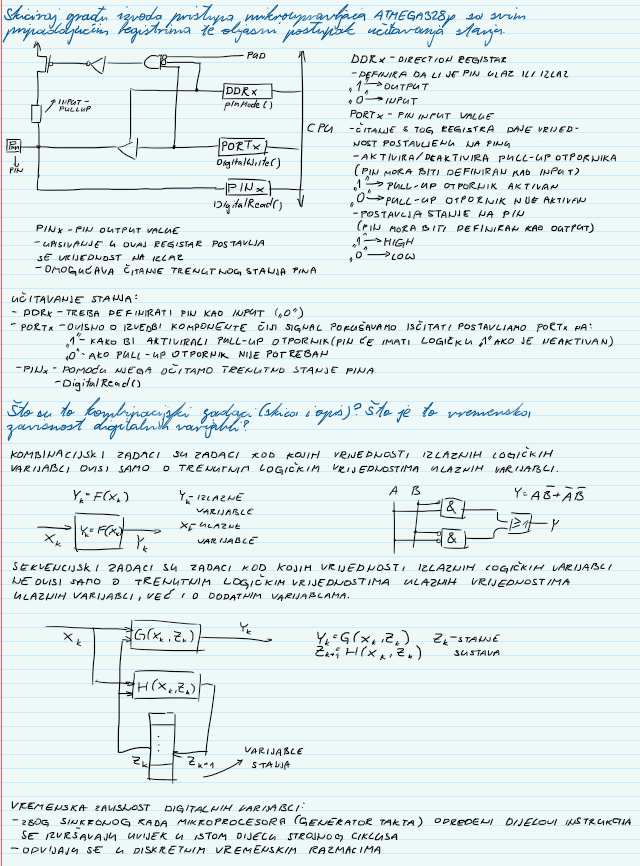 Skiciraj građu izvoda pristupa mikroupravljača ATMEGA328p sa svim
pripadajućim registrima te objasni postupak učitavanja stanja.
PUD
DDRx
pinMode()
INPUT-
PULLUP
CPU
PIN
PORTx
DigitalWrite()
PINx
DigitalRead()
DDRx - DIRECTION REGISTAR
- DEFINIRA DA LI JE PIN ULAZ ILI IZLAZ
„1" → OUTPUT
„0" → INPUT
PORTx - PIN INPUT VALUE
- ČITANJE S TOG REGISTRA DAJE VRIJED-
NOST POSTAVLJENU NA PINU
- AKTIVIRA/DEAKTIVIRA PULL-UP OTPORNIKA
(PIN MORA BITI DEFINIRAN KAO INPUT)
„1" → PULL-UP OTPORNIK AKTIVAN
„0" → PULL-UP OTPORNIK NIJE AKTIVAN
- POSTAVLJA STANJE NA PIN
(PIN MORA BITI DEFINIRAN KAO OUTPUT)
„1" → HIGH
„0" → LOW
PINx - PIN OUTPUT VALUE
- UPISIVANJE U OVAJ REGISTAR POSTAVLJA
SE VRIJEDNOST NA IZLAZ
- OMOGUĆAVA ČITANJE TRENUTNOG STANJA PINA
UČITAVANJE STANJA:
- DDRx - TREBA DEFINIRATI PIN KAO INPUT („0")
- PORTx - OVISNO O IZVEDBI KOMPONENTE ČIJI SIGNAL POKUŠAVAMO ISČITATI POSTAVLJAMO PORTx NA:
„1" - KAKO BI AKTIVIRALI PULL-UP OTPORNIK (PIN ĆE IMATI LOGIČKU „1" AKO JE NEAKTIVAN)
„0" - AKO PULL-UP OTPORNIK NIJE POTREBAN
- PINx - POMOĆU NJEGA OČITAMO TRENUTNO STANJE PINA
- DigitalRead()
Što su to kombinacijski zadaci (skica i opis)? Što je to vremenska
zavisnost digitalnih varijabli?
KOMBINACIJSKI ZADACI SU ZADACI KOD KOJIH VRIJEDNOSTI IZLAZNIH LOGIČKIH
VARIJABLI OVISI SAMO O TRENUTNIM LOGIČKIM VRIJEDNOSTIMA ULAZNIH VARIJABLI.
Yk = F(Xk)
Xk
Yk = F(Xk)
Yk
Yk - IZLAZNE
VARIJABLE
Xk - ULAZNE
VARIJABLE
A B
Y = AB̅ + A̅B
&
&
≥1
Y
SEKVENCIJSKI ZADACI SU ZADACI KOD KOJIH VRIJEDNOSTI IZLAZNIH LOGIČKIH VARIJABLI
NE OVISI SAMO O TRENUTNIM LOGIČKIM VRIJEDNOSTIMA ULAZNIH VRIJEDNOSTIMA
ULAZNIH VARIJABLI, VEĆ I O DODATNIM VARIJABLAMA.
Xk
G(Xk, Zk)
Yk
H(Xk, Zk)
Zk
Zk+1
VARIJABLE
STANJA
Yk = G(Xk, Zk)
Zk+1 = H(Xk, Zk)
Zk - STANJE
SUSTAVA
VREMENSKA ZAVISNOST DIGITALNIH VARIJABLI:
- ZBOG SINKRONOG RADA MIKROPROCESORA (GENERATOR TAKTA) ODREĐENI DIJELOVI INSTRUKCIJA
SE IZVRŠAVAJU UVIJEK U ISTOM DIJELU STROJNOG CIKLUSA
- ODVIJAJU SE U DISKRETNIM VREMENSKIM RAZMACIMA